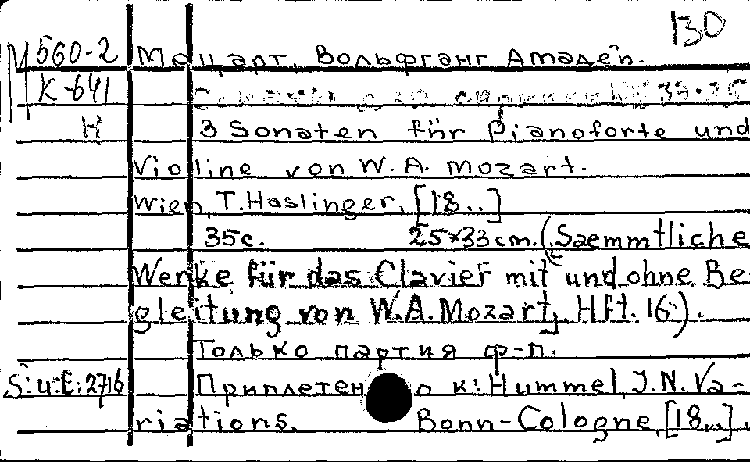 130
М 560-2 Моцарт, Вольфганг Амадей.
К-641
Н 3 Sonaten für Pianoforte und
Violine von W. A. Mozart.
Wien, T. Haslinger, [18..]
35 с. 25×33 cm. (Saemmtliche
Werke für das Clavier mit und ohne Be-
gleitung von W. A. Mozart, Hft. 16.).
Только партия ф-п.
S. u. E: 2716 Приплетен к: Hummel, J. N. Va-
riations. Bonn-Cologne, [18..].